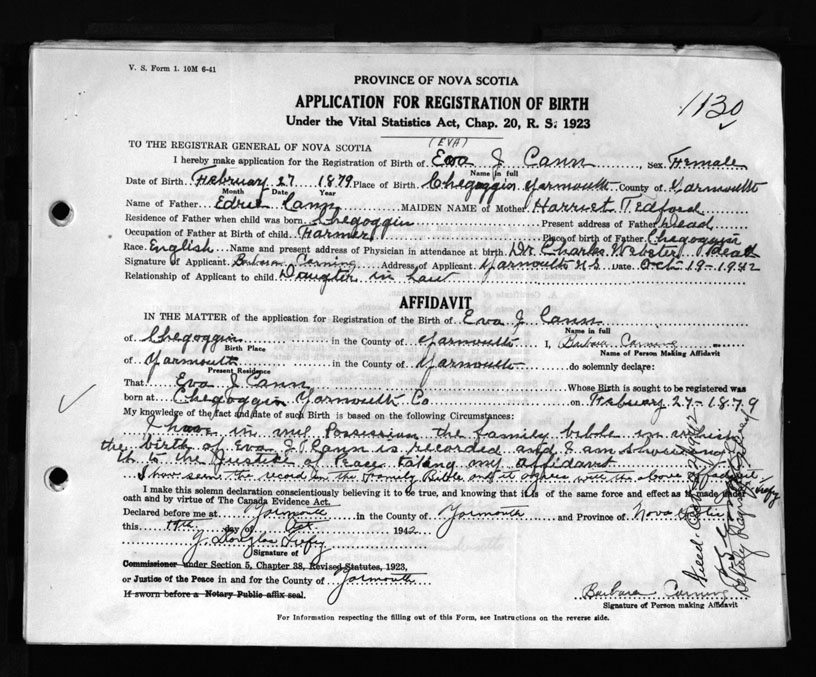 V. S. Form 1. 10M 6-41
PROVINCE OF NOVA SCOTIA
APPLICATION FOR REGISTRATION OF BIRTH
Under the Vital Statistics Act, Chap. 20, R. S. 1923
1130
TO THE REGISTRAR GENERAL OF NOVA SCOTIA
(EVA)
I hereby make application for the Registration of Birth of Eva J Cann, Sex Female
Name in full
Date of Birth February 27 1879 Place of Birth Chegoggin Yarmouth County of Yarmouth
Month Date Year
Name of Father Edric Cann MAIDEN NAME of Mother Harriet Tedford
Residence of Father when child was born Chegoggin Present address of Father Dead
Occupation of Father at Birth of child Farmer Place of birth of Father Chegoggin
Race English Name and present address of Physician in attendance at birth Dr Charles Webster Dead
Signature of Applicant Barbara Corning Address of Applicant Yarmouth N.S. Date Oct 19-1942
Relationship of Applicant to child Daughter in Law
AFFIDAVIT
IN THE MATTER of the application for Registration of the Birth of Eva J Cann
Name in full
of Chegoggin in the County of Yarmouth I, Barbara Corning
Birth Place Name of Person Making Affidavit
of Yarmouth in the County of Yarmouth do solemnly declare:
Present Residence
That Eva J Cann Whose Birth is sought to be registered was
born at Chegoggin Yarmouth Co on February 27-1879
My knowledge of the fact and date of such Birth is based on the following Circumstances:
I have in my Possession the family bible in which
the birth of Eva J Cann is recorded and I am showing
it to the Justice of Peace taking my affidavit
I have seen the record in the Family Bible and it agrees with the above
I make this solemn declaration conscientiously believing it to be true, and knowing that it is of the same force and effect as if made under
oath and by virtue of The Canada Evidence Act.
Declared before me at Yarmouth in the County of Yarmouth and Province of Nova Scotia
this 19th day of Oct 1942
J. Douglas
Signature of
Commissioner under Section 5, Chapter 38, Revised Statutes, 1923,
or Justice of the Peace in and for the County of Yarmouth
If sworn before a Notary Public affix seal.
Barbara Corning
Signature of Person making Affidavit
For Information respecting the filling out of this Form, see Instructions on the reverse side.
Deputy Registrar General